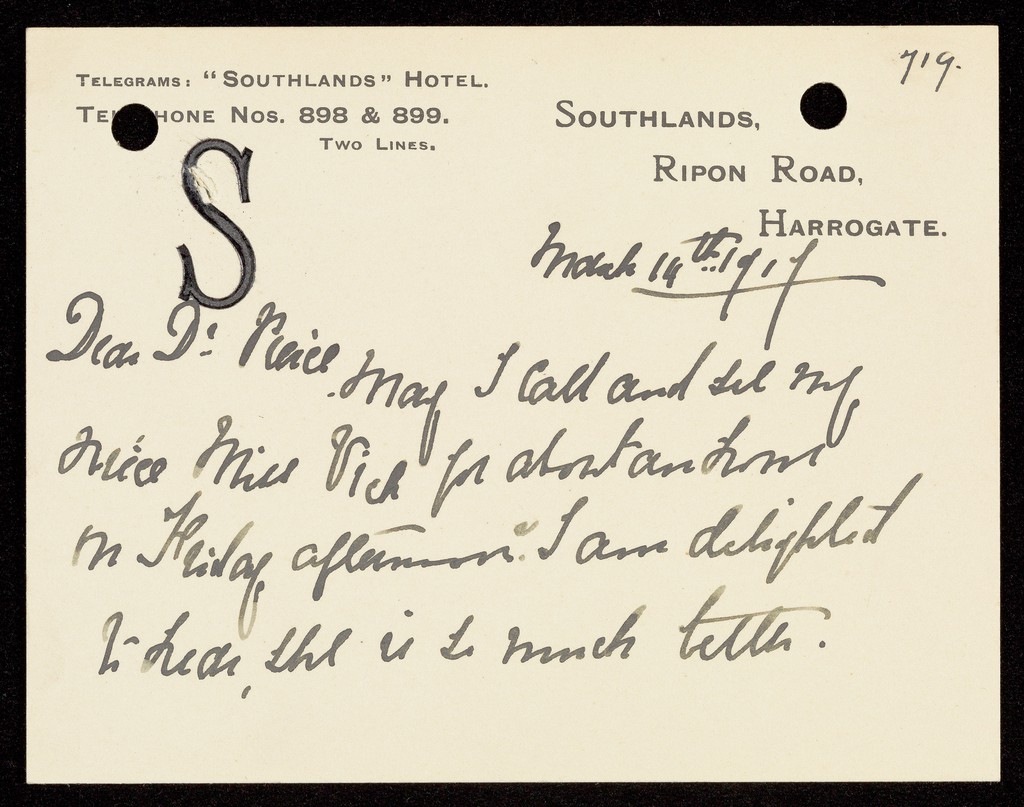 719.
TELEGRAMS: "SOUTHLANDS" HOTEL.
TELEPHONE NOS. 898 & 899.
TWO LINES.
SOUTHLANDS,
RIPON ROAD,
HARROGATE.
S
March 14th. 1917
Dear Dr. Pierce May I call and see my
niece Miss Vick for about an hour
on Friday afternoon. I am delighted
to hear, she is so much better.